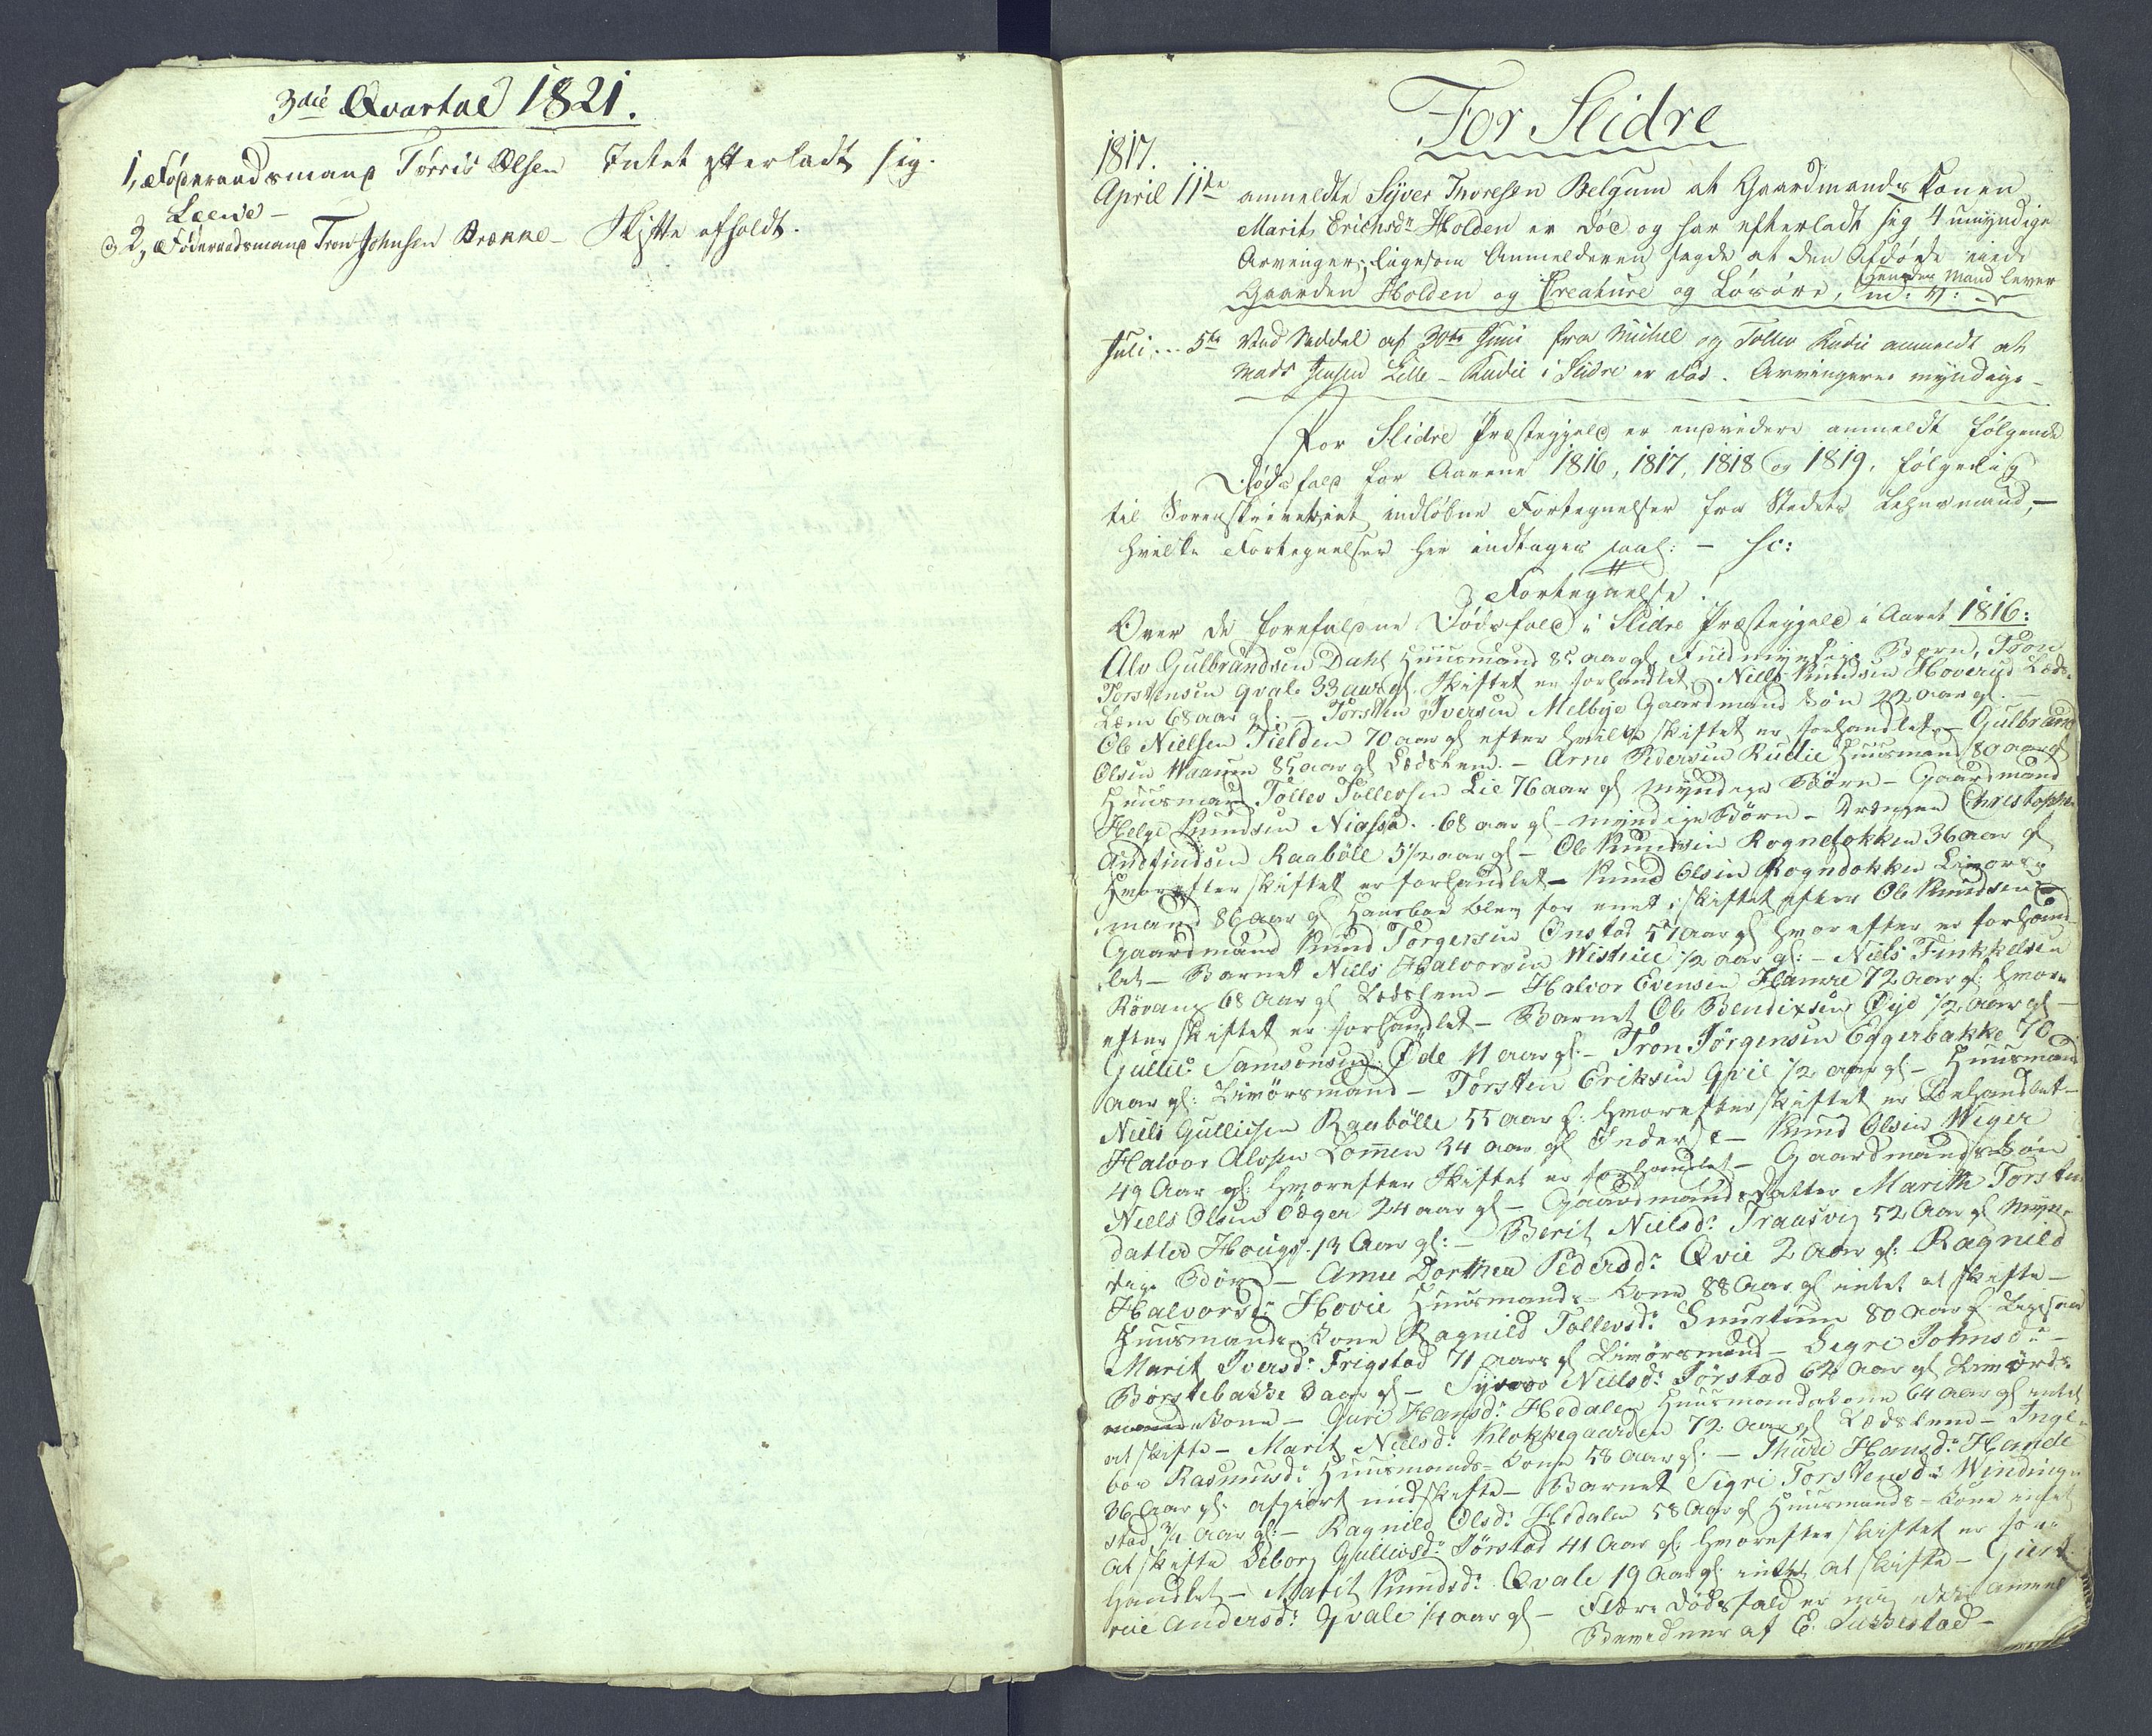 3die Qvartal 1821.
1, Föderaadsmand Törris Olsen Intet efterladt sig.
Leene -
2, Föderaadsmand Tron Johnsen Brenne - Skifte afholdt.
For Slidre
1817.
April 11te anmeldte Syver Thoresen Belgum at Gaardmands Konen
Marit Erichsdr Holden er död og har efterladt sig 4 umyndige
Arvinger, ligesom Anmelderen sagde at den Afdöde eiede
Gaarden Holden og Creature og Lösöre, hendes Mand lever
Juli... 5te Ved Seddel af 30te Juni fra Michel og Tollev Rudie anmeldt at
Mads Jensen Lille-Rudie i Slidre er död. Arvingerne myndige -
For Slidre Præstegjeld er endvidere anmeldt fölgende
Dödsfald for Aarene 1816, 1817, 1818 og 1819, fölgelig
til Sorenskriveriet indlöbne Fortegnelser fra Stedets Lehnsmand, -
hvilke Fortegnelser her indtages saal: -
Fortegnelse
Over de forefaldne Dödsfald i Slidre Præstegjeld i Aaret 1816:
Alv Gulbrandsen Dahl Huusmand 85 aar gl. Fuldmyndige Börn, Tron
Torstensen Qvale 33 aar gl. Skiftet er forhandlet, Niels Knudsen Hoverud Læds-
Lem 68 aar gl. - Torsten Iversen Melbye Gaardmand Sön 22 aar gl. -
Ole Nielsen Tielden 70 aar gl efter hvilke skiftet er forhandlet - Gulbrand
Olsen Waanen 85 aar gl Ledslem. - Arne Pedersen Rudie Huusmand 80 aar gl
Huusmand Tollev Tollevsen Lie 76 aar gl myndige Börn - Gaardmand
Helge Knudsen 68 aar gl - myndige Börn - Drengen Christopher
Andfindsen Raabölle 5 1/2 aar gl - Ole Knudsen Rognefokken 36 aar gl
Hvorefter skiftet er forhandlet - Knud Olsen Rogndokken Livörs-
mand 86 aar gl Hansboe blev for enet i skiftet efter Ole Knudsen -
Gaardmand Knud Torgersen Onstad 57 aar gl hvorefter er forhand-
let - Barnet Niels Halvorsen 1/2 aar gl: - Niels Finkkelsen
Rövang 68 Aar gl Ledslem - Halvor Evensen Hamre 72 aar gl. hvor-
efter skiftet er forhandlet - Barnet Ole Bendixsen Öyd 1/2 aar gl -
Gullic Samsonsen Öde 11 aar gl. - Tron Jörgensen Eggerbakke 70
aar gl: Livörsmand - Torsten Eriksen Qvie 1/2 aar gl - Huusmand
Niels Gullicsen Raabölle 55 aar gl. hvorefter skiftet er behandlet -
Halvor Alvsen Lomen 34 aar gl - Knud Olsen Weger
49 Aar gl: hvorefter Skiftet er forhandlet - Gaardmands Sön
Niels Olsen Öeger 24 aar gl - Gaardmands Datter Marith Torsten
datter Hougs. 13 Aar gl: - Berit Nielsdr Traasvig 52 Aar gl myn-
dige Börn - Anne Dorthea Pedersdr Qvie 2 Aar gl: Ragnild
Halvorsdr Hovie Huusmands-Kone 88 Aar gl intet at skifte -
Huusmands-Kone Ragnild Tollevsdr Snurtum 80 aar gl.
Marit Iversdr Frigstad 71 aar gl Livörsmand - Segre Johnsdr -
Börstebakke 3 aar gl - Nielsdr Jörstad 64 Aar gl Livörds-
mands Kone - Guri Hansdr Hedalen Huusmands Kone 64 aar gl intet
at skifte - Marit Nielsdr Klokkegaarden 72 Aar gl Ledslem - Inge-
bor Rasmusdr Huusmands-Kone 58 aar gl: - Thurie Hansdr Hande
36 Aar gl. afgiort ved skifte - Barnet Sigri Torstensdr Windinge
stad 3/4 Aar gl: - Ragnild Olsdr Hedalen 58 Aar gl Huusmands-Kone intet
at skifte Seborg Gullicsdr Jörstad 41 Aar gl. hvorefter skiftet er for-
handlet - Marit Knudsdr Qvale 19 Aar gl. intet at skifte - Giert-
rue Andersdr Qvale 1/4 aar gl - Flere Dödsfald er mig ikke anmel
Bevidner af E. Tukkestad -